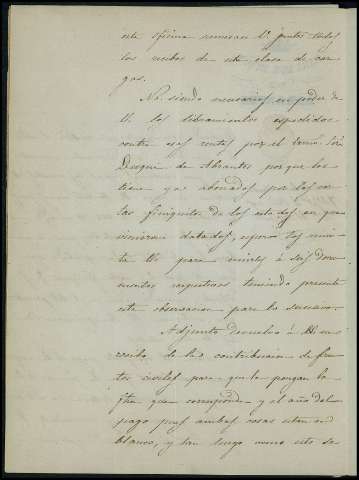 esta oficina reunan V. juntos todos
los recibos de esta clase de car
gas.
No siendo necesarios en poder de
V. los libramientos espedidos
contra esas rentas por el Exmo. Sor
Duque de Abrantes porque los
tiene ya abonados por las cu
tas finiquitos de los estados en que
vinieron datados, espero los remi
ta V. para unirlos á sus docu
mentos respectivos teniendo presente
esta observacion para lo sucesivo.
Adjunto devuelvo á V. un
recibo de la contribucion de fru
tos civiles para que le pongan la
fha que corresponde y el año del
pago pues ambas cosas estan en
blanco, y tan luego como esto se